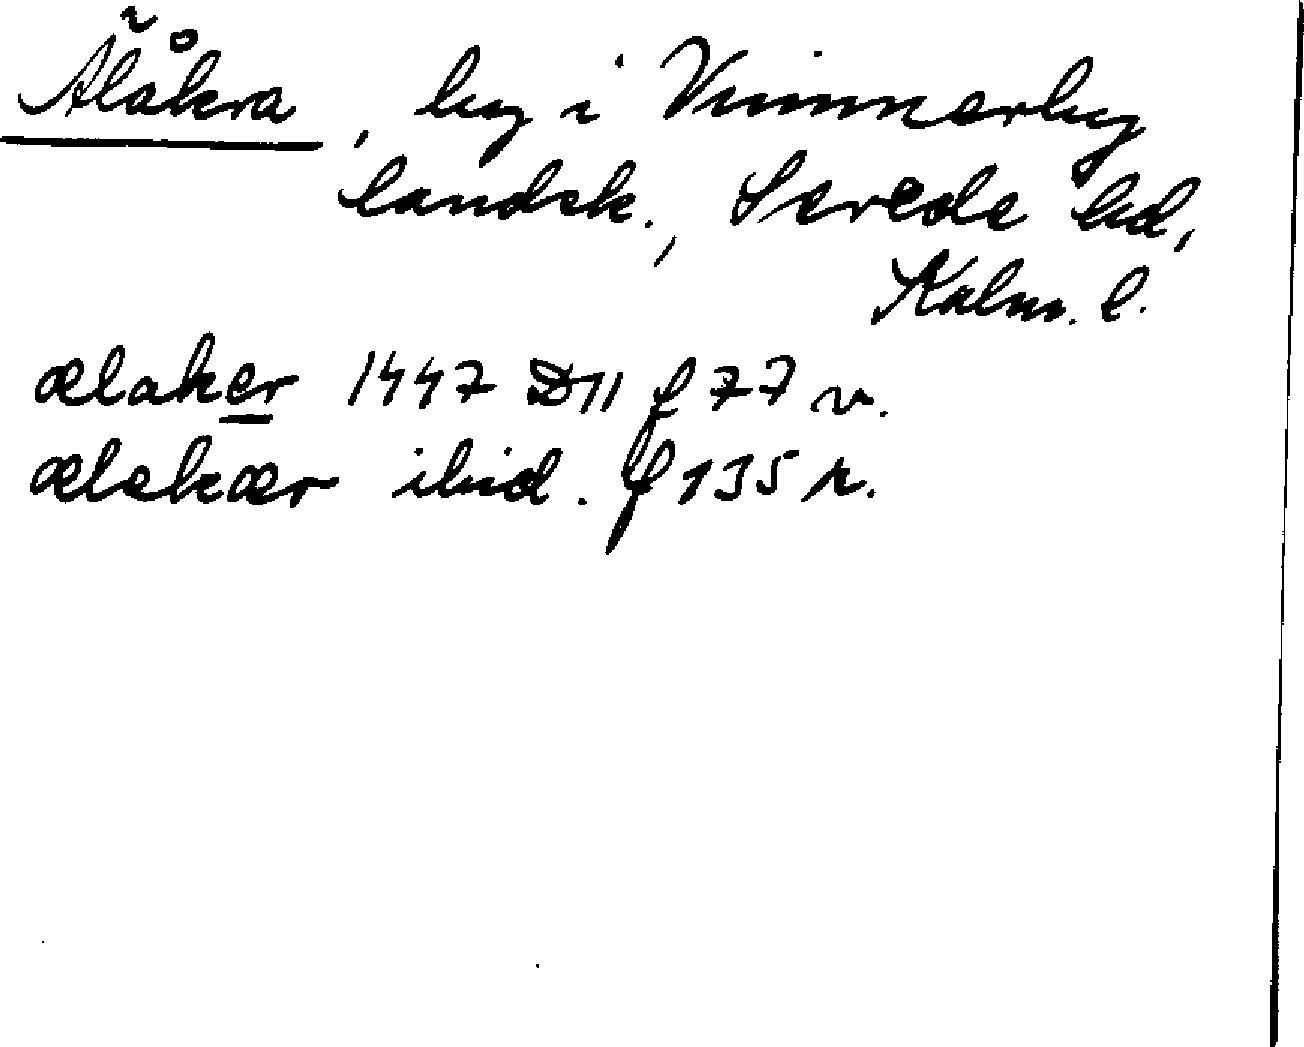 Älåkra, by i Vimmerby
landsk., Sevede hd,
Kalm. l.
ælaker 1447 D11 f 77 v.
ælekær ibid. f 135 r.